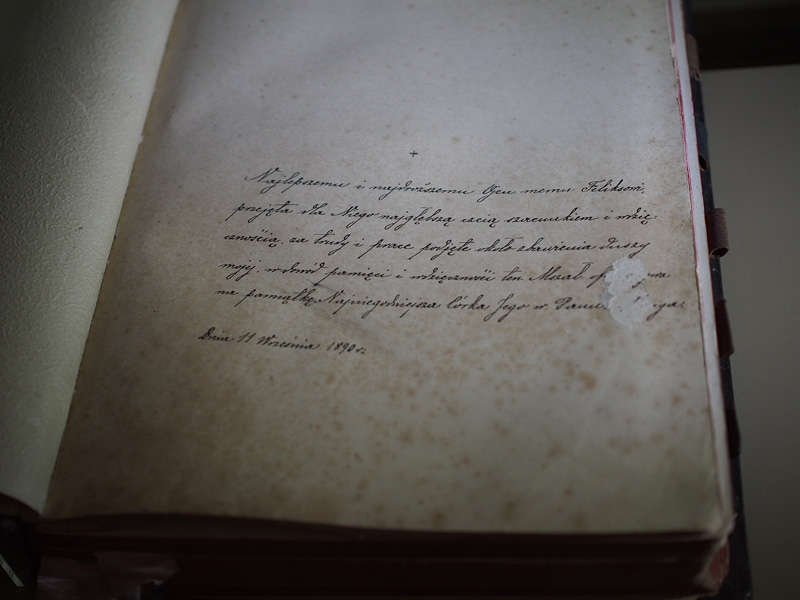 +
Najlepszemu i najdroższemu Ojcu memu Feliksowi,
przejęta dla Niego najgłębszą czcią szacunkiem i wdzię-
cznością, za trudy i prace podjęte około zbawienia duszy
mojej, w dowód pamięci i wdzięczności ten Mszał
na pamiątkę Najniegodniejsza Córka Jego w
Dnia 11 Września 1890 r.